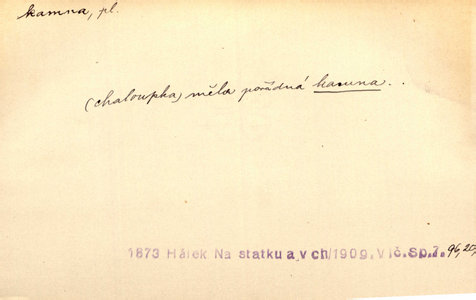 kamna, pl.
(chaloupka) měla pořádná kamna . .
1873 Hálek Na statku a v ch/1909. Vlč. Sp. 7. 96, 20,